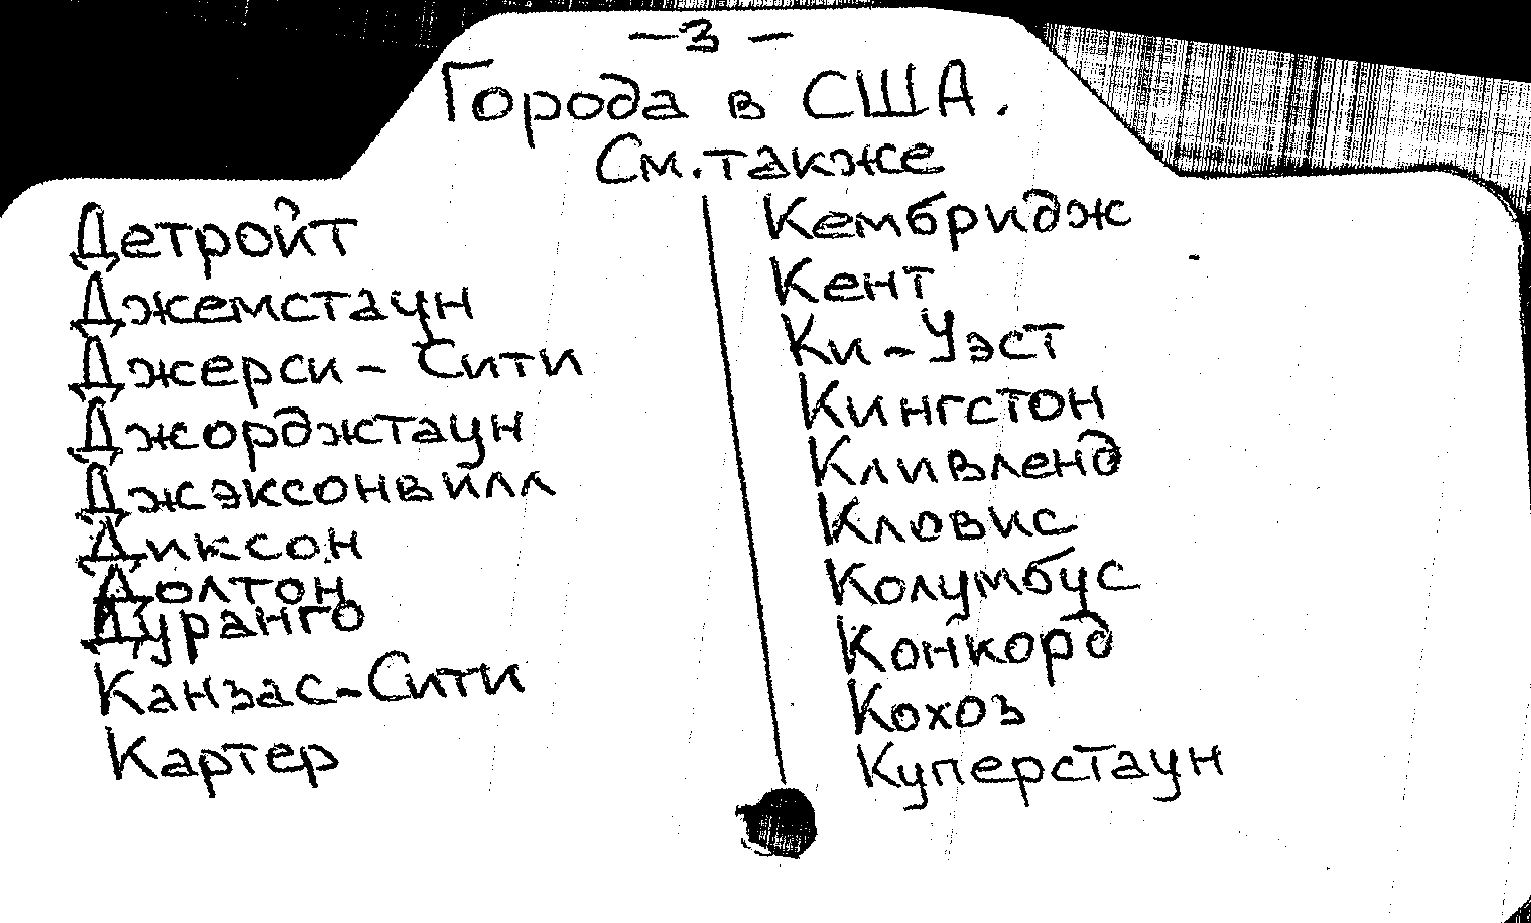 — 3 —
Города в США.
См. также
Детройт
Джемстаун
Джерси - Сити
Джорджтаун
Джэксонвилл
Диксон
Долтон
Дуранго
Канзас-Сити
Картер
Кембридж
Кент
Ки-Уэст
Кингстон
Кливленд
Кловис
Колумбус
Конкорд
Кохоз
Куперстаун